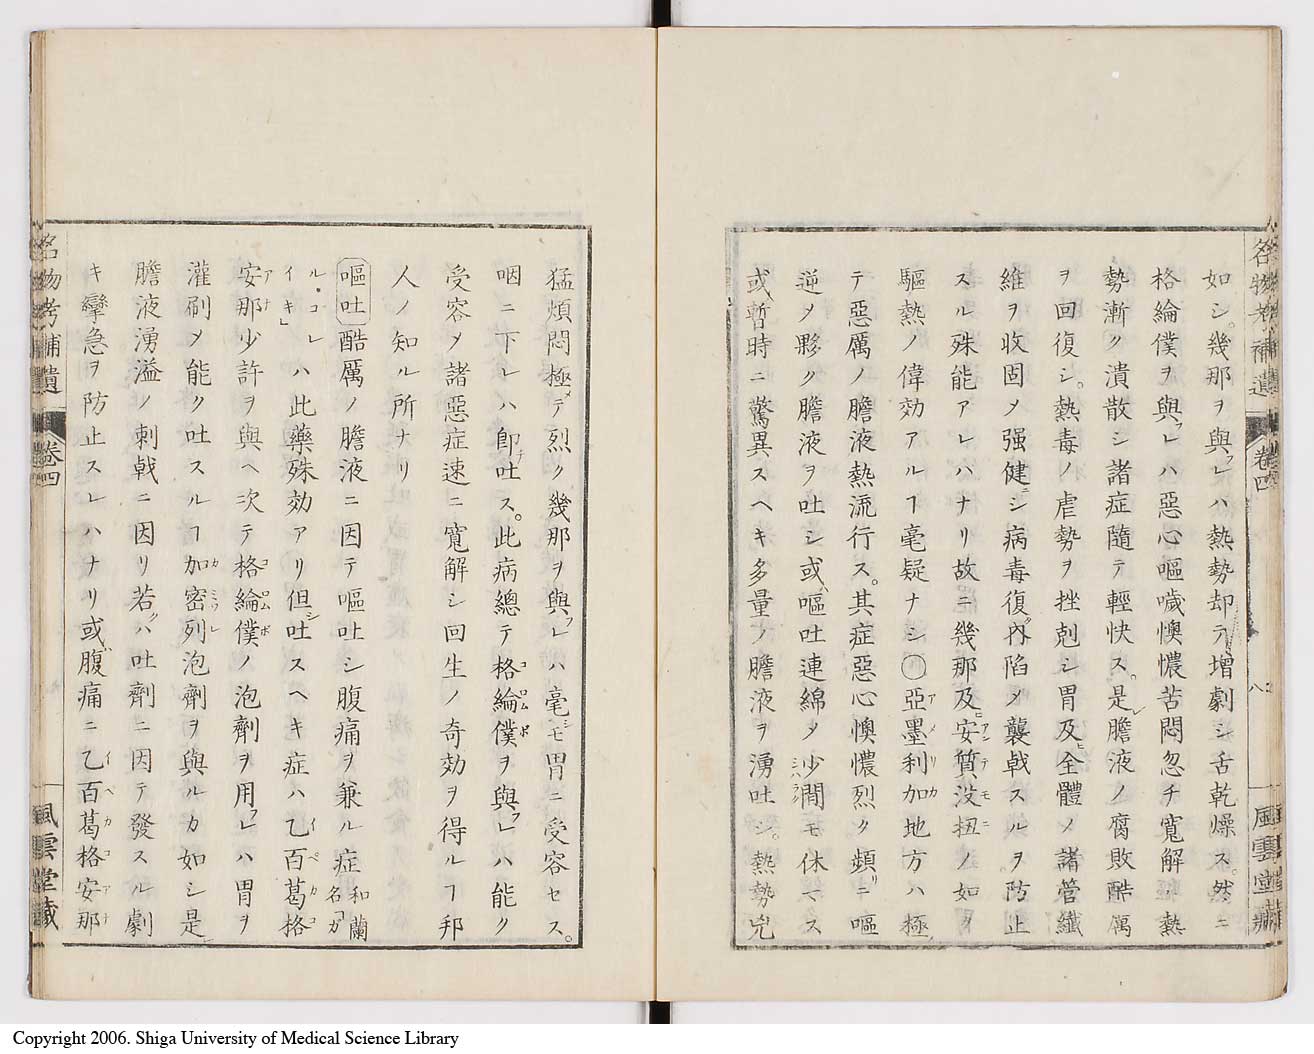 名物考補遺 卷四 八 風雲堂藏
如シ。幾那ヲ與フレハ熱勢却テ增劇シ舌乾燥ス。然ルニ
格綸僕ヲ與フレハ惡心嘔噦懊憹苦悶忽チ寬解シ熱
勢漸ク潰散シ諸症隨テ輕快ス。是レ膽液ノ腐敗酷厲
ヲ回復シ。熱毒ノ虐勢ヲ挫剋シ胃及ヒ全體ノ諸管纖
維ヲ收固メ强健ニシ病毒復ヒ內陷メ襲戟スルヲ防止
スル殊能アレハナリ故ニ幾那及ヒ安質没扭ノ如ク
驅熱ノ偉効アルヿ毫疑ナシ〇亞墨利加地方ハ極メ
テ惡厲ノ膽液熱流行ス。其症惡心懊憹烈ク頻リニ嘔
逆メ夥ク膽液ヲ吐シ或ハ嘔吐連綿メ少間モ休マス
或ハ暫時ニ驚異スヘキ多量ノ膽液ヲ湧吐シ。熱勢兇
猛煩悶極メテ烈ク幾那ヲ與フレハ毫シモ胃ニ受容セス。
咽ニ下レハ卽チ吐ス。此病總テ格綸僕ヲ與フレハ能ク
受容メ諸惡症速ニ寬解シ回生ノ奇効ヲ得ルヿ邦
人ノ知ル所ナリ
嘔吐 酷厲ノ膽液ニ因テ嘔吐シ腹痛ヲ兼ル症 和蘭名「ガ
ル・コレイキ」ハ此藥殊効アリ但シ吐スヘキ症ハ乙百葛格
安那少許ヲ與ヘ次テ格綸僕ノ泡劑ヲ用フレハ胃ヲ
灌刷メ能ク吐スルヿ加密列泡劑ヲ與ルカ如シ是レ
膽液湧溢ノ刺戟ニ因リ若クハ吐劑ニ因テ發スル劇
キ攣急ヲ防止スレハナリ或ハ腹痛ニ乙百葛格安那
名物考補遺 卷四 風雲堂藏
Copyright 2006. Shiga University of Medical Science Library